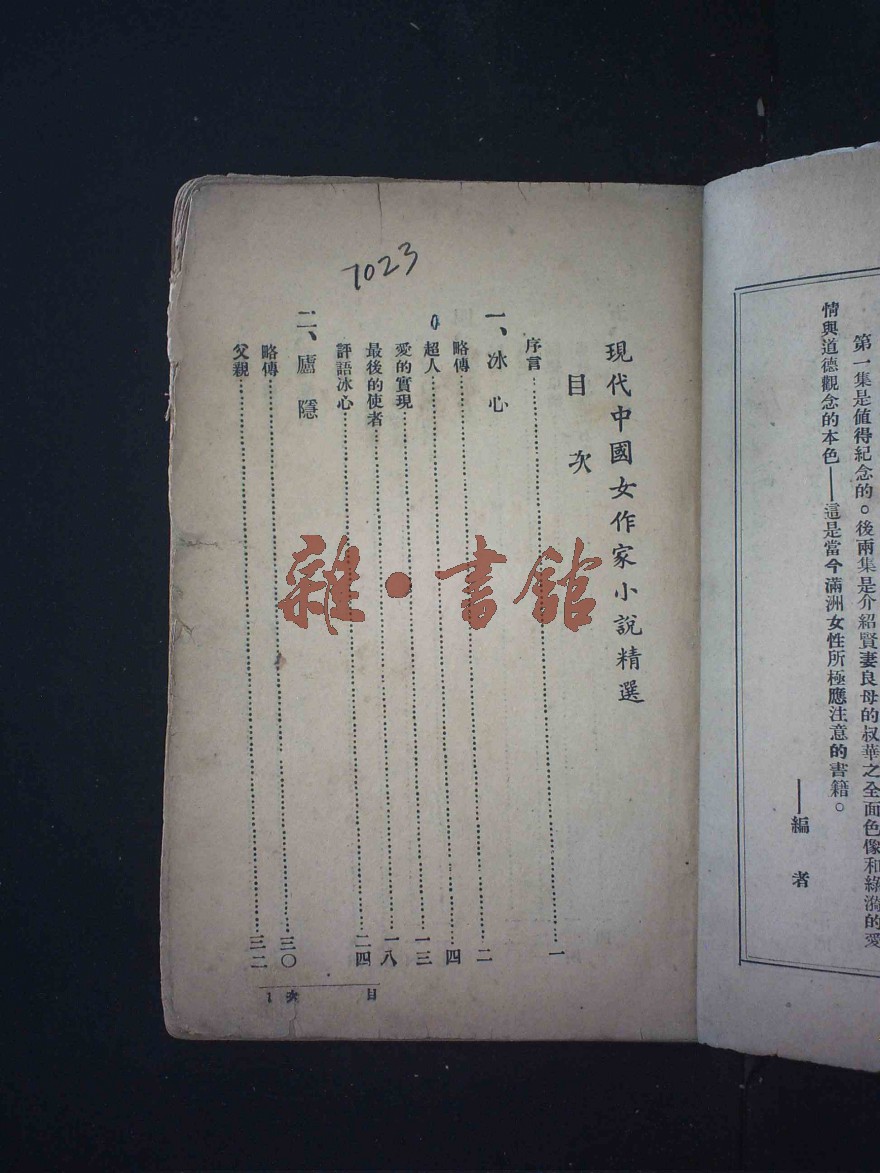 第一集是値得紀念的。後兩集是介紹賢妻良母的叔華之全面色像和綠漪的愛
情與道德觀念的本色——這是當今滿洲女性所極應注意的書籍。
——編者
7023
現代中國女作家小說精選
目次
序言…一
一、冰心
略傳…二
超人…四
愛的實現…一三
最後的使者…一八
評語冰心…二四
二、廬隱
略傳…三〇
父親…三二
目次 1
雜·書館